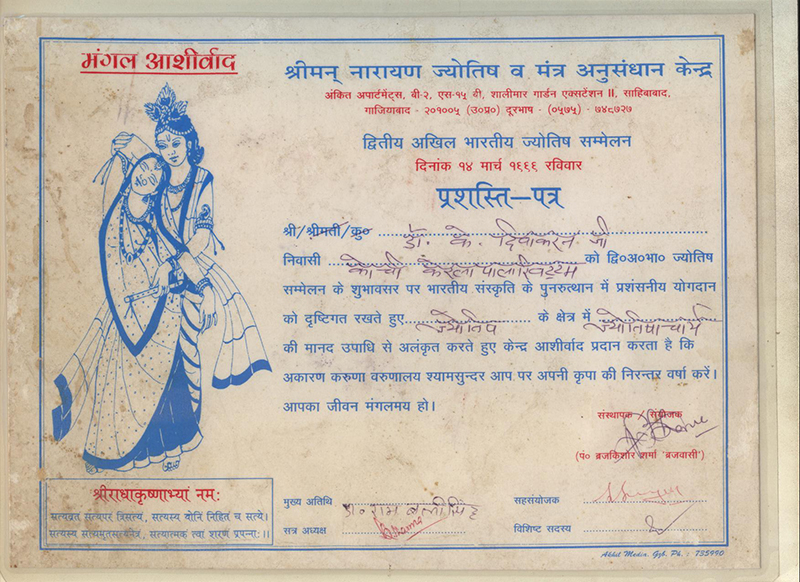 मंगल आशीर्वाद
श्रीमन् नारायण ज्योतिष व मंत्र अनुसंधान केन्द्र
अंकित अपार्टमेंट्स, बी-२, एस-१५ बी, शालीमार गार्डन एक्सटेंशन II, साहिबाबाद,
गाजियाबाद - २०१००५ (उ०प्र०) दूरभाष - (०५७५) - ७४८७२७
द्वितीय अखिल भारतीय ज्योतिष सम्मेलन
दिनांक १४ मार्च १९९९ रविवार
प्रशस्ति-पत्र
श्री/श्रीमती/कु० डॉ. के. दिवाकरन जी
निवासी कोच्ची केरला पालारिवट्टम को द्वि०अ०भा० ज्योतिष
सम्मेलन के शुभावसर पर भारतीय संस्कृति के पुनरुत्थान में प्रशंसनीय योगदान
को दृष्टिगत रखते हुए ज्योतिष के क्षेत्र में ज्योतिषाचार्य
की मानद उपाधि से अलंकृत करते हुए केन्द्र आशीर्वाद प्रदान करता है कि
अकारण करुणा वरुणालय श्यामसुन्दर आप पर अपनी कृपा की निरन्तर वर्षा करें।
आपका जीवन मंगलमय हो।
संस्थापक / संयोजक
(पं० ब्रजकिशोर शर्मा 'ब्रजवासी')
श्रीराधाकृष्णाभ्यां नमः
सत्यव्रतं सत्यपरं त्रिसत्यं, सत्यस्य योनिं निहितं च सत्ये।
सत्यस्य सत्यमृतसत्यनेत्रं, सत्यात्मकं त्वां शरणं प्रपन्नाः।।
मुख्य अतिथि डा० राम बली सिंह
सत्र अध्यक्ष
सहसंयोजक
विशिष्ट सदस्य
Akhil Media, Gzb. Ph. : 735990